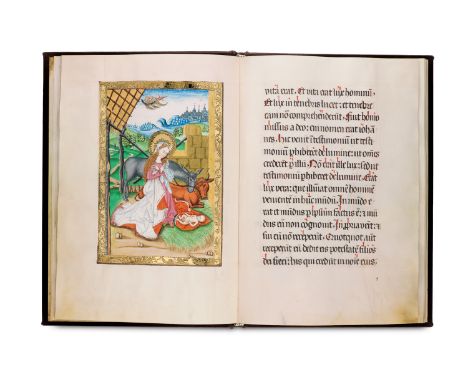 vita erat. Et vita erat lux hominū.
Et lux in tenebris lucet: et tenebre
eam non comprehenderūt. Fuit homo
missus a deo: cui nomen erat ioha
nes. hic venit ī testimoniū ut testi
moniū phiberet de lumine: ut omēs
crederēt p illū. Nō erat ille lux: sed ut
testimoniū phiberet de lumine. Erat
lux vera: que illuīat omnē hominē
venientē in hūc mūdū. In mūdo e
rat et mūdus p ipsum factus ē: z mū
dus eū non cognouit. In ppria venit: z
sui eū nō receperūt. Quotquot aūt
receperūt eū dedit eis potestatē filios
dei fieri: his qui credūt in noīe eius.